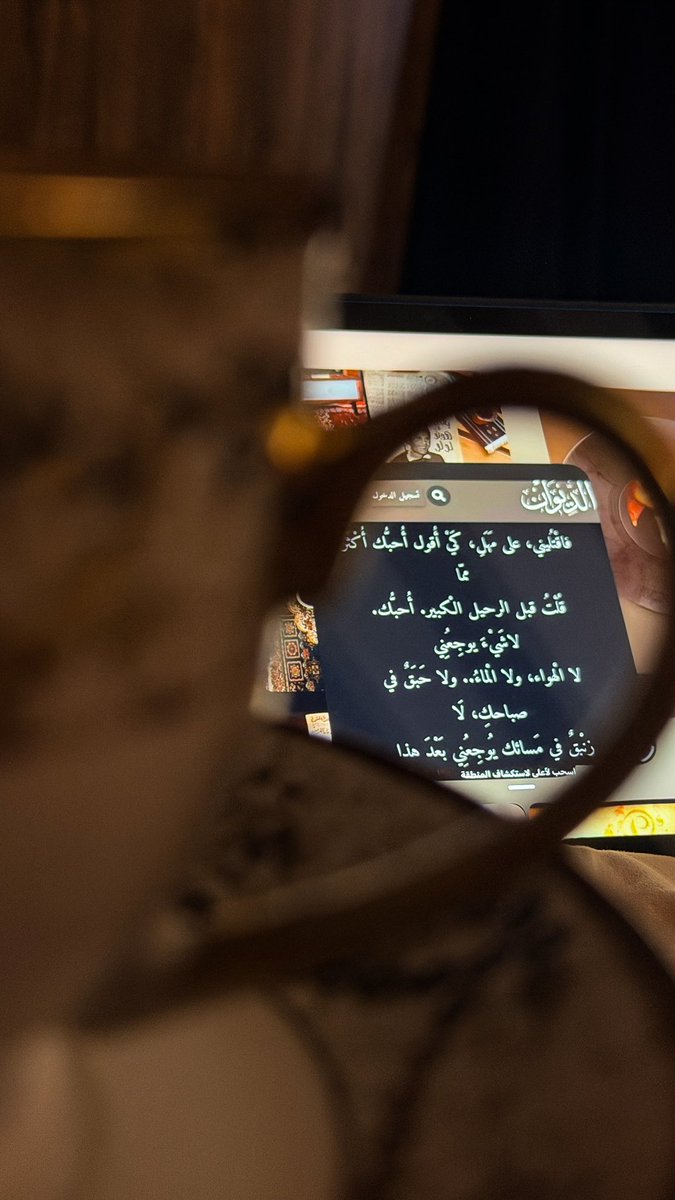 الديوان
تسجيل الدخول
فَاقْتُلِيني، على مَهَلٍ، كَيْ أَقول أُحبُّك أَكْثر
ممّا
قُلْتُ قبل الرحيل الْكبير. أُحبُّك.
لاشَيْءَ يوجِعُني
لا الْهواء، ولا الْماء.. ولا حَبَقٌ في
صباحكِ، لَا
زنْبَقٌ في مَسائك يُوجِعُني بَعْدَ هذا
اسحب لأعلى لاستكشاف المنطقة